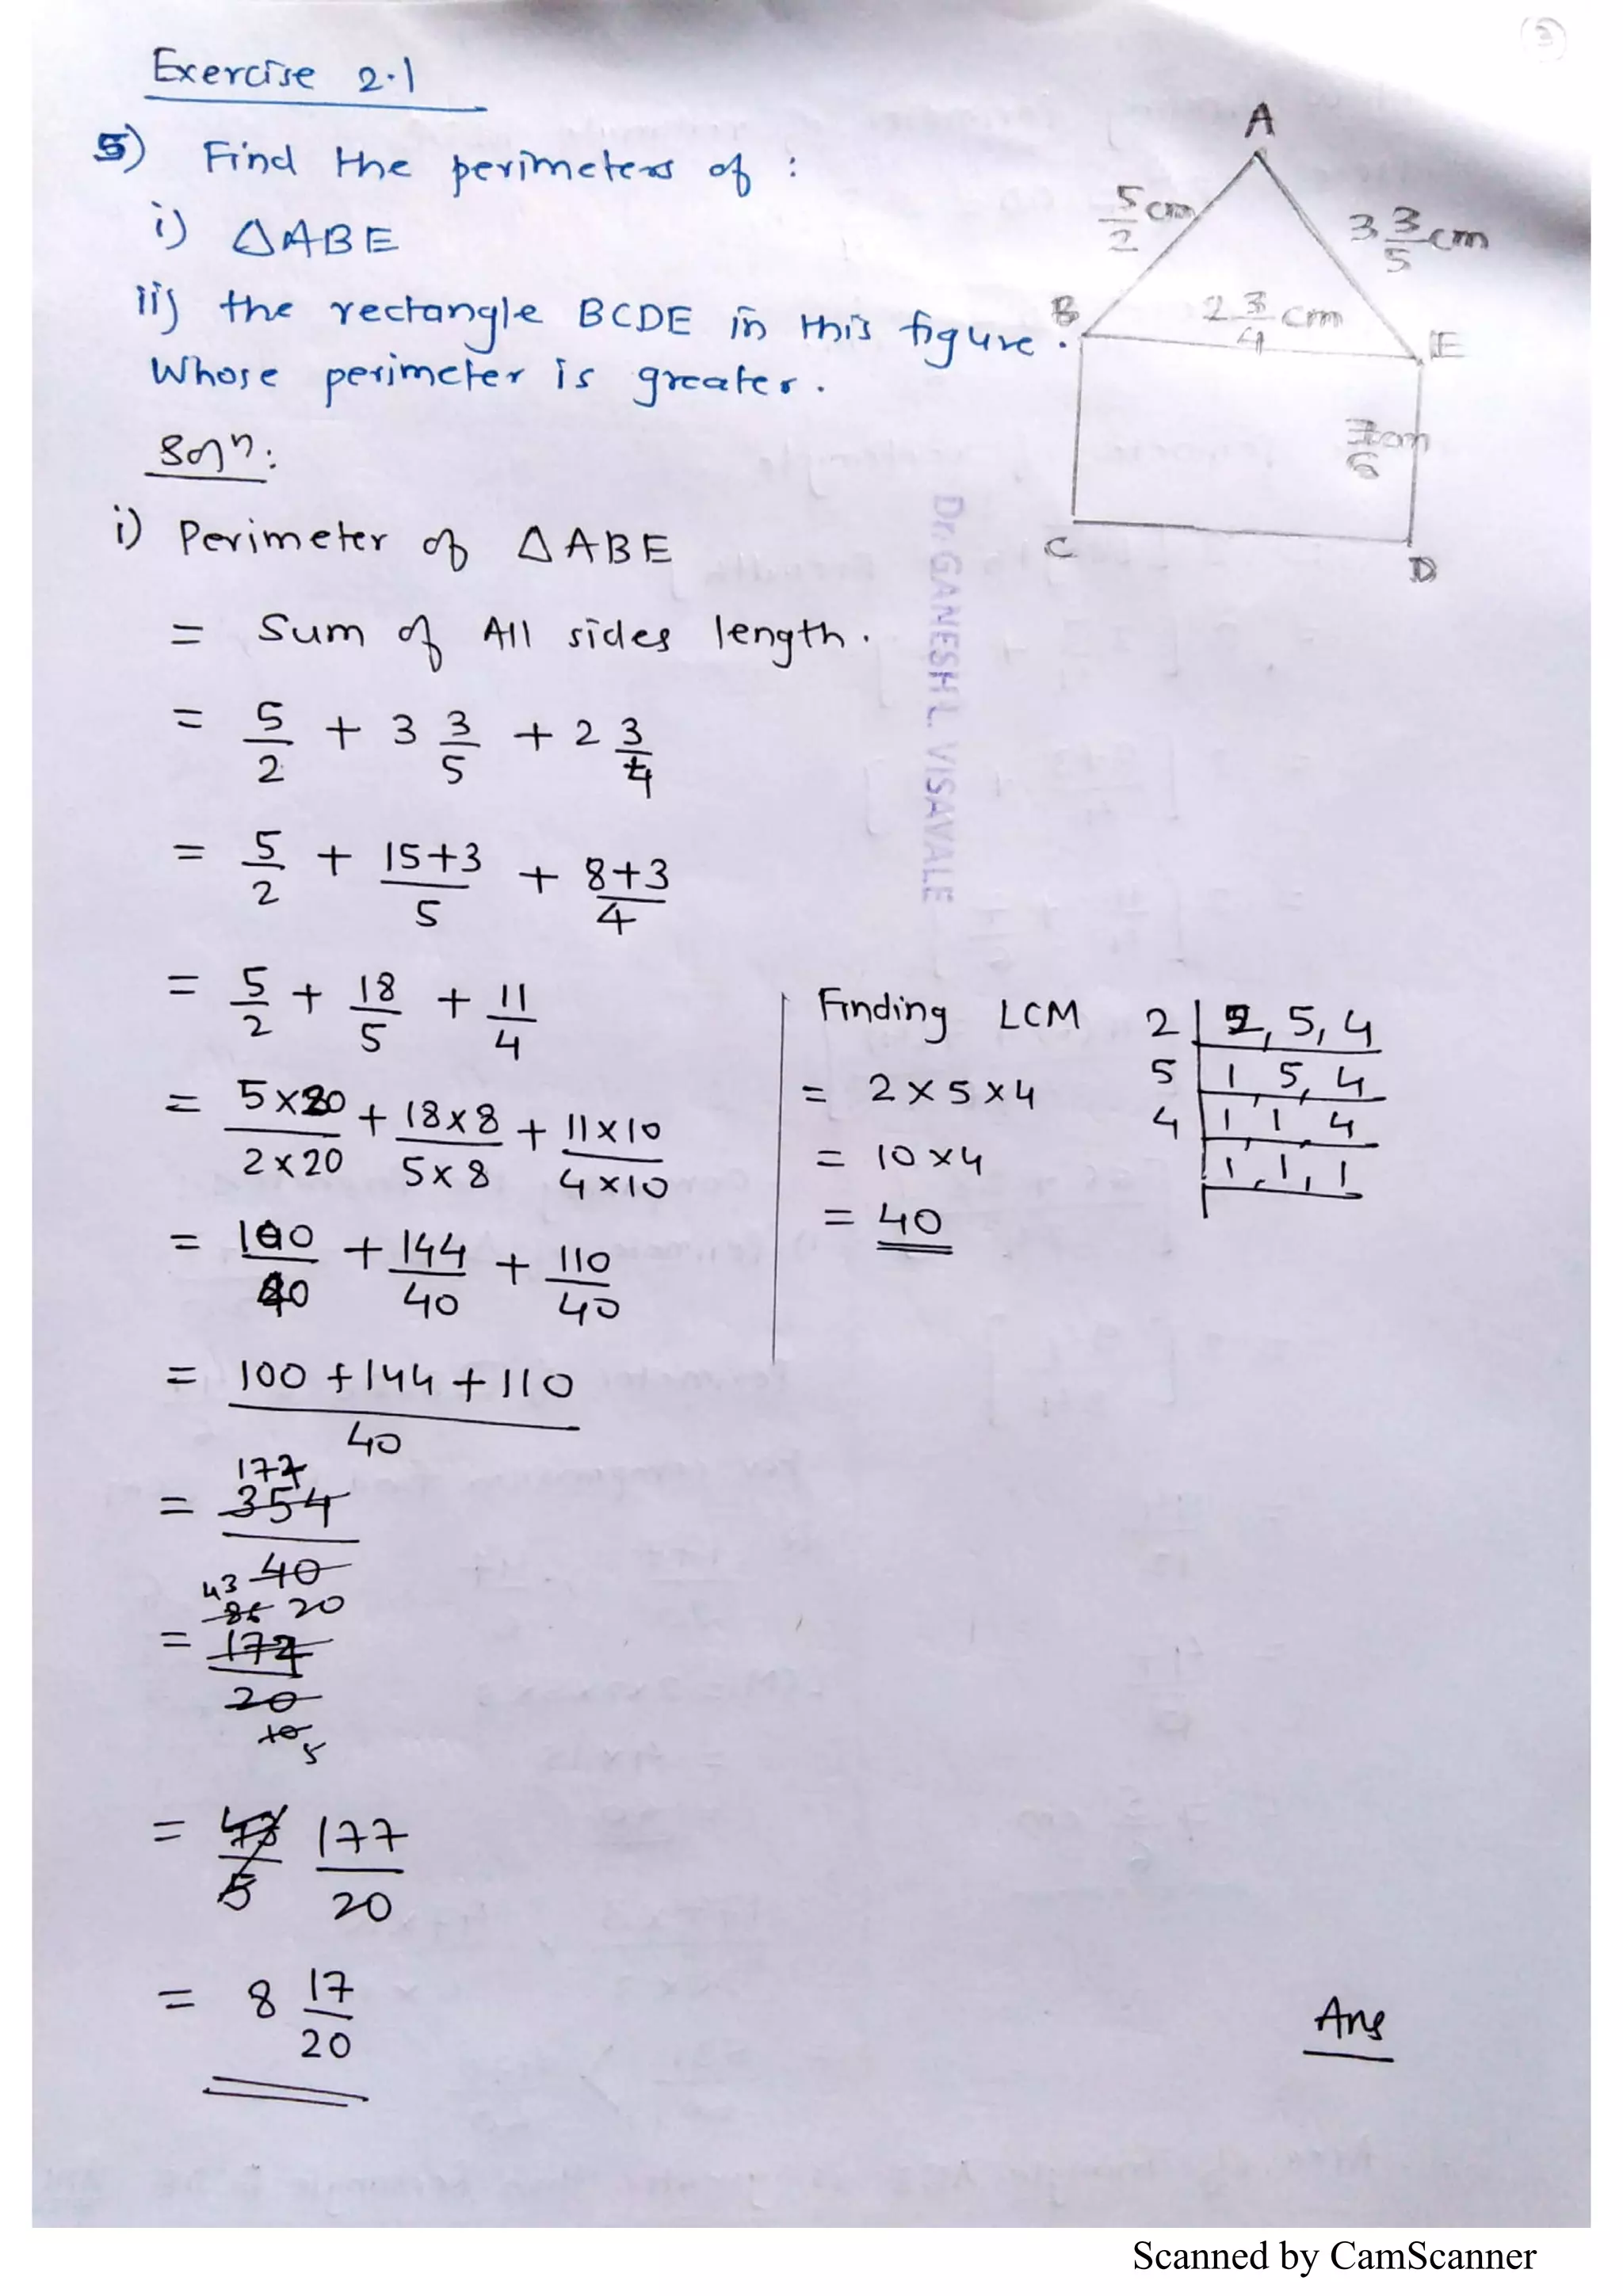 Exercise 2.1
5) Find the perimeters of :
i) △ABE
ii) the rectangle BCDE in this figure.
Whose perimeter is greater.
A
5/2 cm
3 3/5 cm
B
2 3/4 cm
E
7/6 cm
C
D
Dr. GANESH L. VISAVALE
Solⁿ:
i) Perimeter of △ABE
= Sum of All sides length.
= 5/2 + 3 3/5 + 2 3/4
= 5/2 + 15+3/5 + 8+3/4
= 5/2 + 18/5 + 11/4
= 5×20/2×20 + 18×8/5×8 + 11×10/4×10
= 100/40 + 144/40 + 110/40
= 100+144+110/40
177
= 354/40
43 86 20
= 177/20
10 5
= 43/5 177/20
= 8 17/20
Finding LCM
= 2×5×4
= 10×4
= 40
2 | 2, 5, 4
5 | 1, 5, 4
4 | 1, 1, 4
1, 1, 1
Ans
Scanned by CamScanner